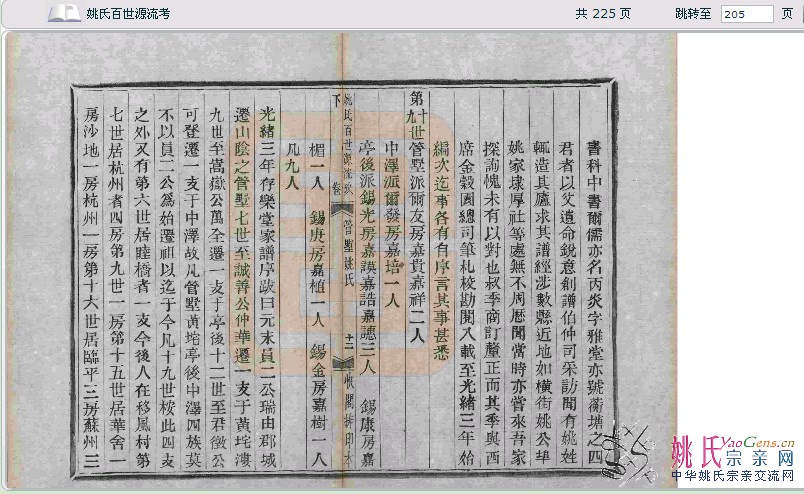 姚氏百世源流考
共 225 页
跳转至 205 页
書科中書爾儒亦名丙炎字雅堂亦號蘅塘之四
君者以父遺命銳意創譜伯仲司采訪聞有姚姓
輒造其廬求其譜經涉數縣近地如橫街姚公埠
姚家埭厚社等處無不周歷聞當時亦嘗來吾家
探詢愧未有以對也叔季商訂釐正而其季與西
席金穀園總司筆札校勘閱入載至光緒三年始
編次迄事各有自序言其事甚悉
第十九世管墅派爾友房嘉貴嘉祥二人
中澤派爾發房嘉培一人
亭後派錫光房嘉謨嘉誥嘉譓三人 錫康房嘉
姚氏百世源流攷 卷下 管墅姚氏 十二
楣一人 錫庚房嘉植一人 錫金房嘉樹一人
凡九人
光緒三年存樂堂家譜序跋曰元末員二公瑞由郡城
遷山陰之管墅七世至誠善公仲華遷一支于黃垞漊
九世至嵩嶽公萬全遷一支于亭後十二世至君徵公
可登遷一支于中澤故凡管墅黃垞亭後中澤四族莫
不以員二公爲始遷祖以迄于今凡十九世桉此四支
之外又有第六世居睦橋者一支今後人在移風村第
七世居杭州者四房第九世一房第十五世居華舍一
房沙地一房杭州一房第十六世居臨平三房蘇州三
姚氏 YaoGens.cn
宗亲网
中华姚氏宗亲交流网